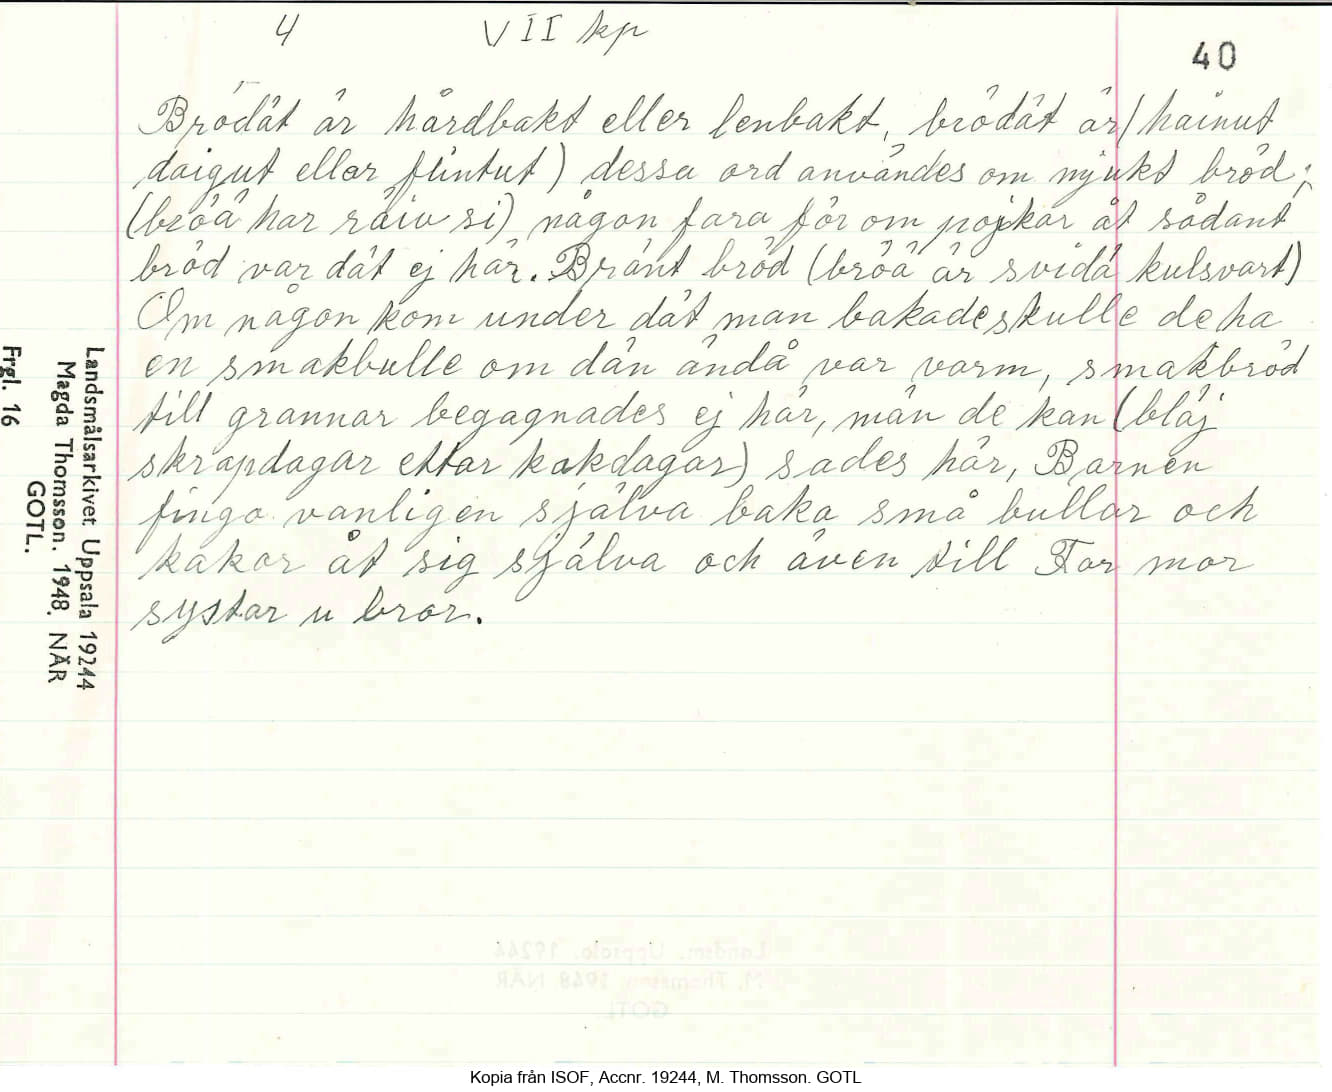 4 VII kp
40
Brödät är hårdbakt eller lenbakt, brödät är (håinut
daigut ellar flintut) dessa ord användes om mjukt bröd;
(bröä har räiv si) någon fara för om pojkar åt sådant
bröd var dät ej här. Bränt bröd (bröä är svidä kulsvart)
Om någon kom under dät man bakade skulle de ha
en smakbulle om dän ändå var varm, smakbröd
till grannar begagnades ej här, män de kan (bläj
skrapdagar ettar kakdagar) sades här, Barnen
fingo vanligen själva baka små bullar och
kakor åt sig själva och även till Far mor
systar u bror.
Landsmålsarkivet, Uppsala 19244
Magda Thomsson. 1948. NÄR
GOTL.
Frgl. 16
Landsm. Uppsala. 19244
M. Thomsson 1948 NÄR
GOTL
Kopia från ISOF, Accnr. 19244, M. Thomsson. GOTL